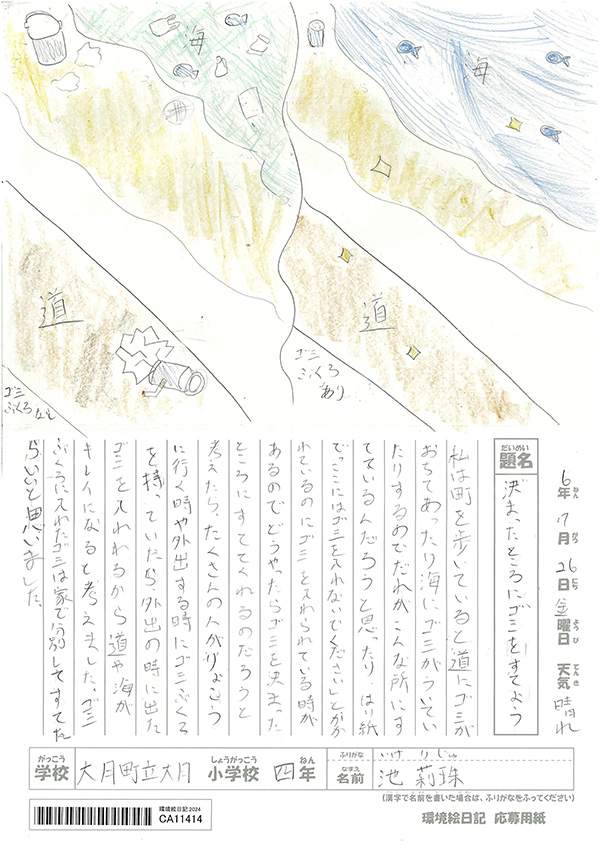 海
海
道
道
ゴミ
ぶくろ
なし
ゴミ
ぶくろ
あり
6年 7月 26日 金曜日 天気 晴れ
ねん がつ にち ようび てんき
だいめい
題名
決まったところにゴミをすてよう
私は町を歩いていると道にゴミが
おちてあったり海にゴミがういてい
たりするのでだれがこんな所にす
てているんだろうと思ったり、はり紙
でここにはゴミを入れないでください」とかか
れているのにゴミを入れられている時が
あるのでどうやったらゴミを決まった
ところにすててくれるのだろうと
考えたら、たくさんの人がりょこう
に行く時や外出する時にゴミぶくろ
を持っていたら外出の時に出た
ゴミを入れれるから道や海が
キレイになると考えました。ゴミ
ぶくろに入れたゴミは家で分別してすてた
らいいと思いました。
がっこう しょうがっこう ねん
学校 大月町立大月 小学校 四年
ふりがな いけ りじゅ
なまえ
名前 池 莉珠
(漢字で名前を書いた場合は、ふりがなをふってください)
環境絵日記 2024
CA11414
環境絵日記 応募用紙